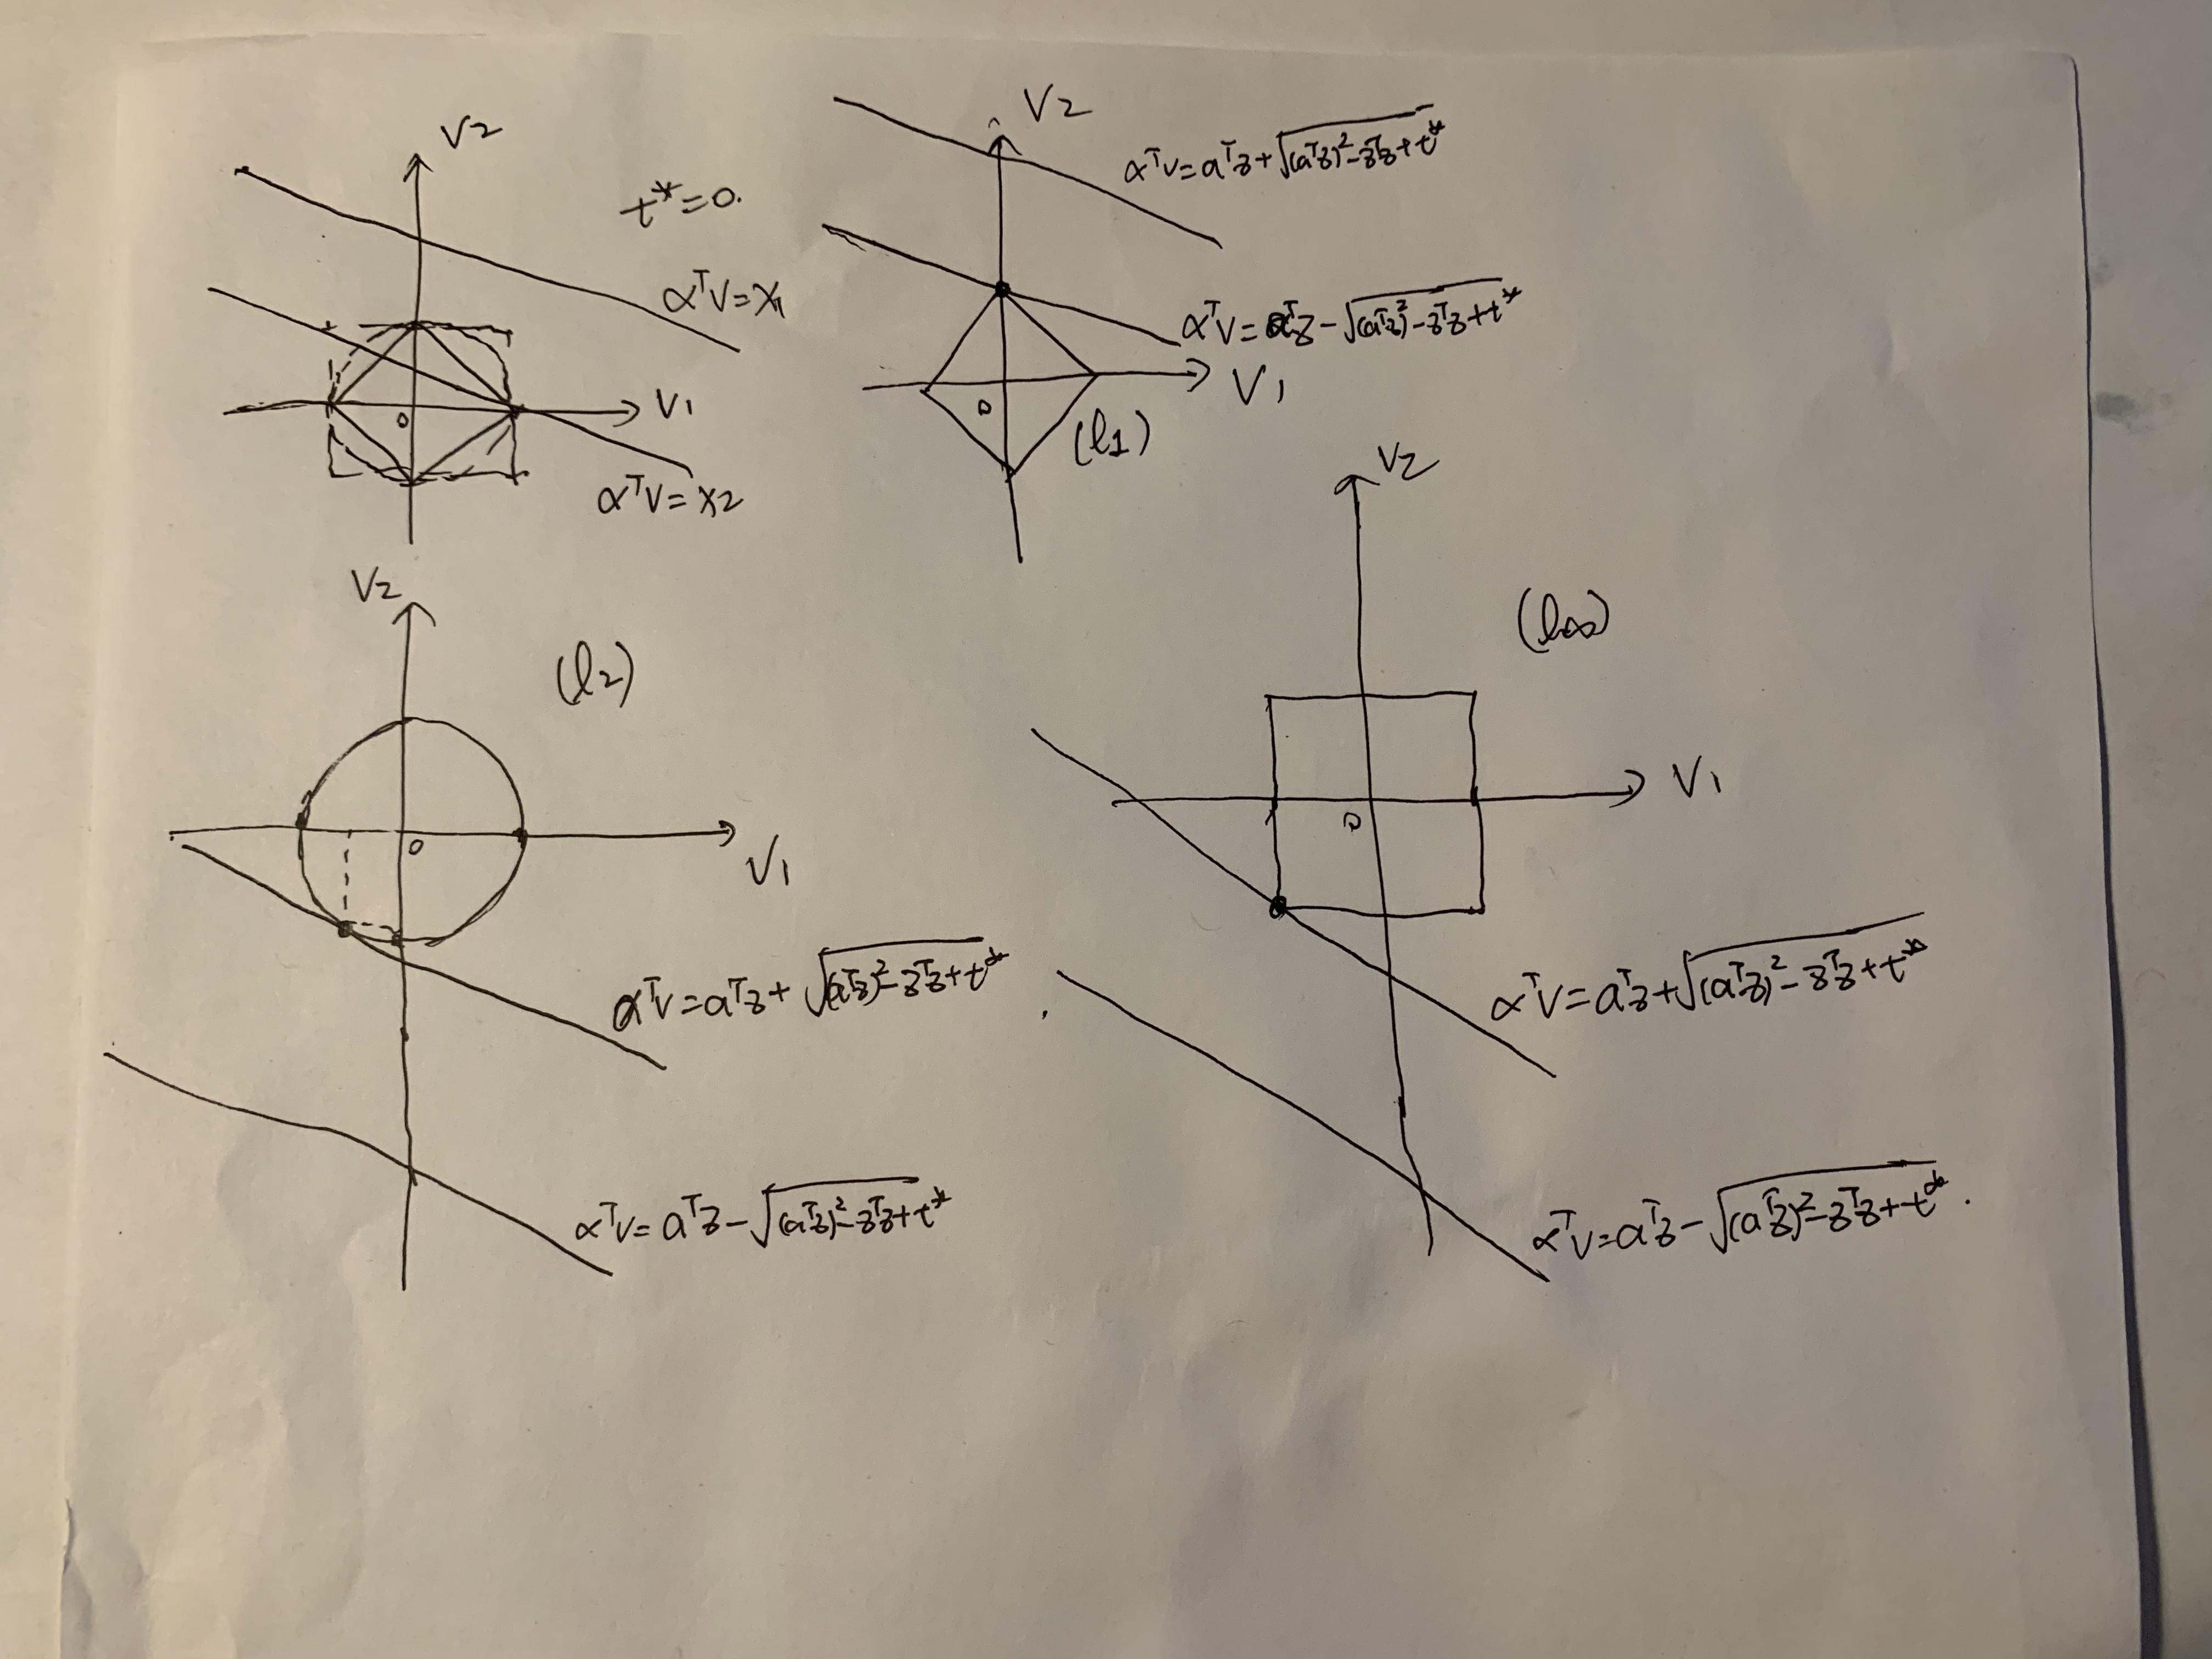 V2
t*=0.
αᵀV=x₁
V1
0
αᵀV=x2
V2
αᵀv=aᵀz+√((aᵀz)²-zᵀz+t*)
αᵀV=aᵀz-√((aᵀz)²-zᵀz+t*)
V1
0
(l1)
V2
(l2)
0
V1
αᵀV=aᵀz+√((aᵀz)²-zᵀz+t*)
αᵀV=aᵀz-√((aᵀz)²-zᵀz+t*)
V2
(l∞)
V1
0
αᵀV=aᵀz+√((aᵀz)²-zᵀz+t*)
αᵀV=aᵀz-√((aᵀz)²-zᵀz+t*).